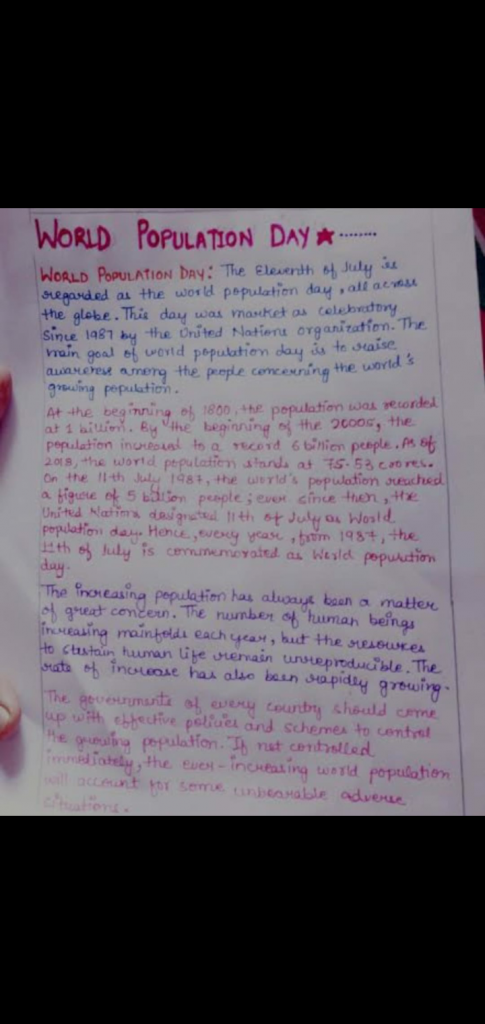 WORLD POPULATION DAY★........
WORLD POPULATION DAY: The Eleventh of July is
regarded as the world population day, all across
the globe. This day was market as celebratory
Since 1987 by the United Nations organization. The
main goal of world population day is to raise
awareness among the people concerning the world's
growing population.
At the beginning of 1800, the population was recorded
at 1 billion. By the beginning of the 2000s, the
population increased to a record 6 billion people. As of
2018, the world population stands at 75.53 crores.
On the 11th July 1987, the world's population reached
a figure of 5 billion people; ever since then, the
United Nations designated 11th of July as World
population day. Hence, every year, from 1987, the
11th of July is commemorated as World population
day.
The increasing population has always been a matter
of great concern. The number of human beings
increasing mainfolds each year, but the resources
to sustain human life remain unreproducible. The
rate of increase has also been rapidly growing.
The governments of every country should come
up with effective policies and schemes to control
the growing population. If not controlled
immediately, the ever-increasing world population
will account for some unbearable adverse
situations.